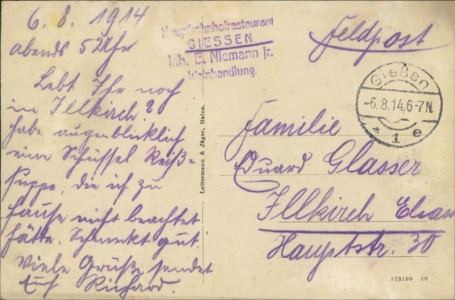 6.8.1914
abends 5 Uhr
Lebt Ihr noch
in Illkirch?
habe augenblicklich
eine Schüssel Reiß-
suppe, die ich zu
Hause nicht beachtet
hätte. Schmekt gut
Viele Grüße sendet
Euch Richard.
Hauptbahnhofrestaurant
GIESSEN
Inh. E. Niemann jr.
Weinhandlung.
Leitermann & Jäger, Mainz.
Feldpost
Gießen
-6.8.14.6-7N.
* 1 e
Familie
Eduard Glasser
Illkirch Elsass
Hauptstr. 30